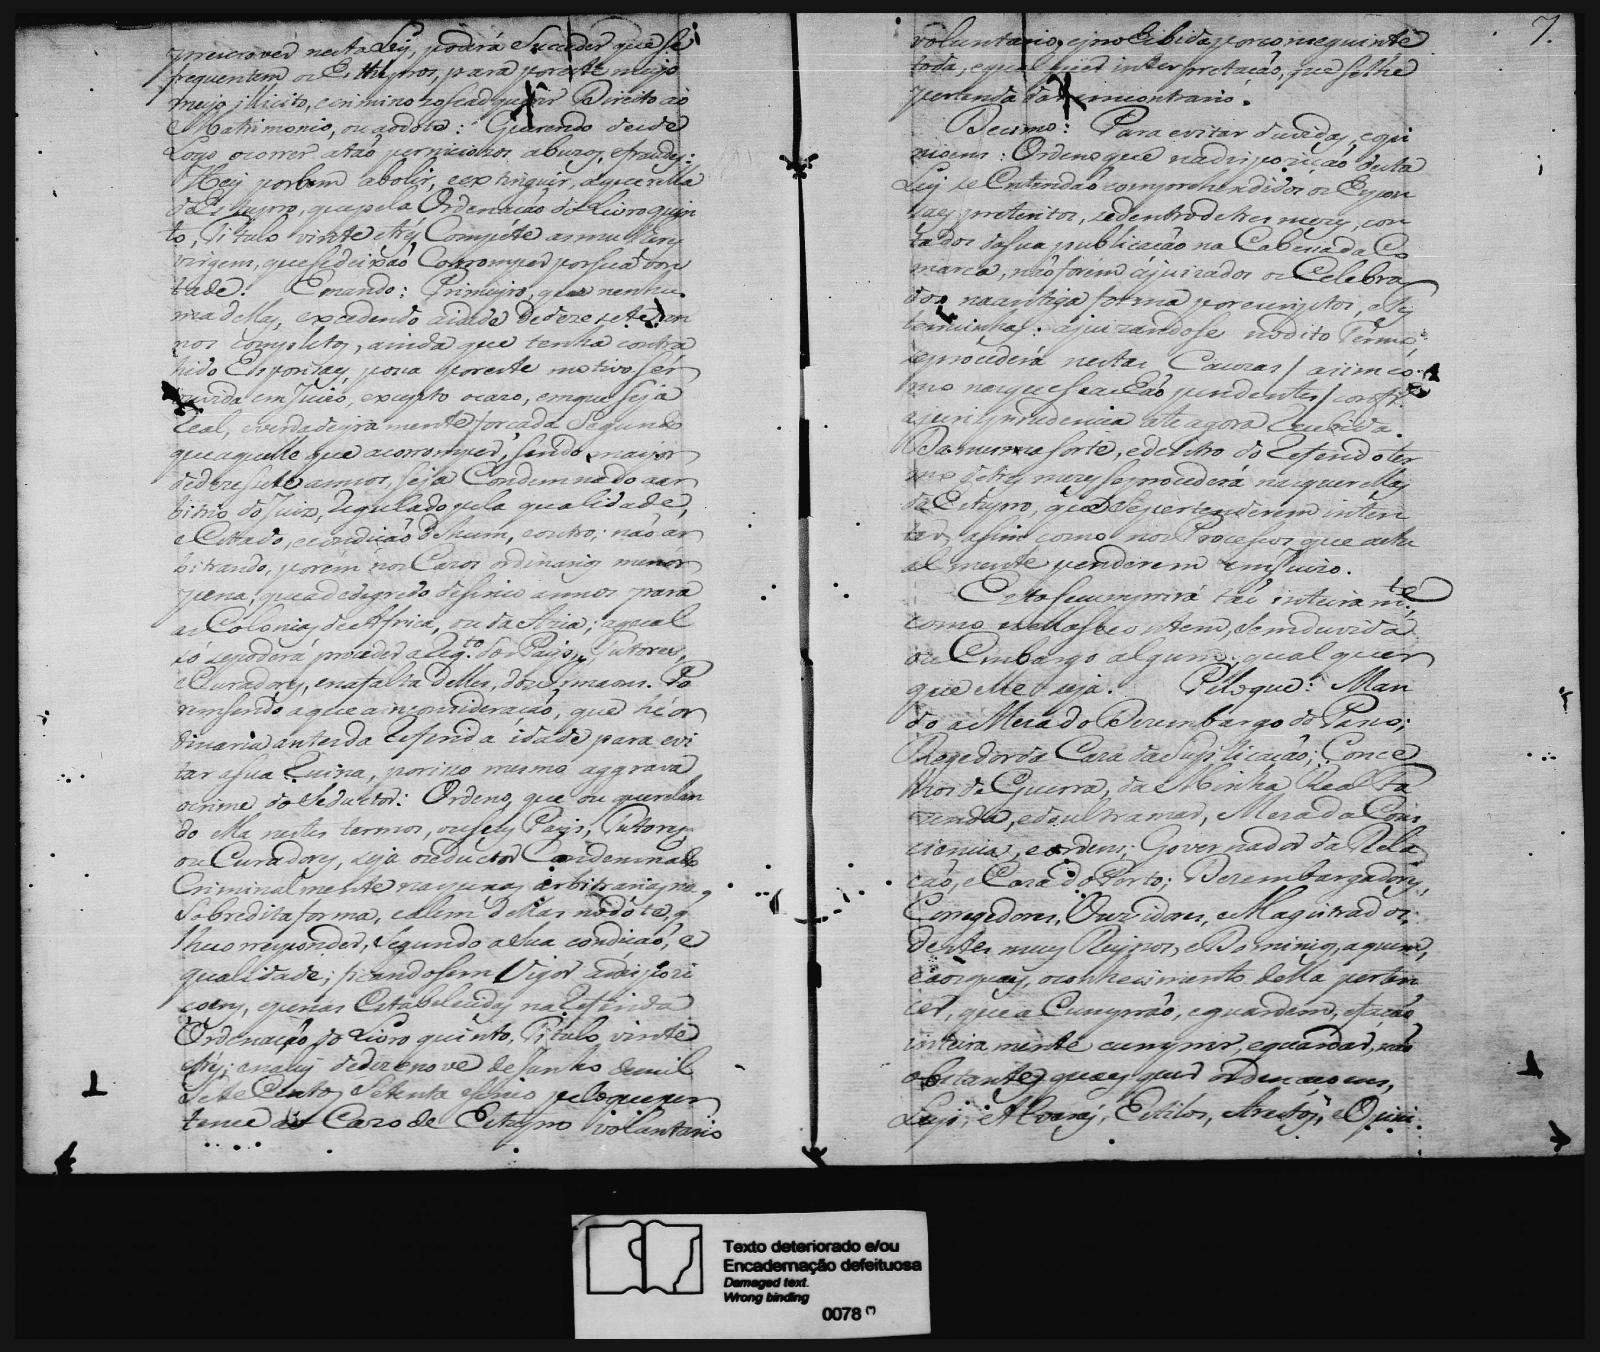 prescrever nesta Ley, poderá Succeder que se
frequentem os Esthupros, para por este meyo
meyo illicito, e criminozo se adquirir Direito ao
Matrimonio, ou ao dote: Querendo desde
Logo ocorrer a taõ perniciozos abuzos, e fraudes:
Hey por bem abolir, e extinguir, a querella
de Estupro, que pela Ordenaçaõ do Livro quin
to, Titulo vinte e trez Compéte as mulheres
virgens, que se deixaõ Corromper por sua von
tade: E mando: Primeiro, que nenhu
ma dellas, excedendo a idade de dezesete an
nos completos, ainda que tenha contra
hido Esponsaes possa por este motivo sér
ouvida em Juizo, excepto o cazo, em que seja
Leal, e verdadeyramente forçada Segundo
que aquelle que a corromper, sendo mayor
de dezesete annos, seja Condemnado a ar
bitrio do Juiz, Regulado pela qualidade,
e Estado, e condiçaõ de hum, e outro; naõ ar
bitrando, porém nos Cazos ordinarios menor
pena, que a de degredo de sinco annos para
as Colonias de Africa, ou da Azia; a qual
só se poderá proceder a Req.to dos Pays, Tutores,
e Curadores, e na falta delles, dos Irmaons. Po
rem sendo a que a inconsideraçaõ, que hé or
dinaria antes da Referida idade para evi
tar a sua Ruina, por isso mesmo aggrava
o crime do Seductor: Ordeno, que ou querelan
do ella nestes termos, ou seus Pays, Tutores,
ou Curadores, seja o seductor Condemnado
Criminalmente nas penas arbitrarias, na
Sobredita forma, e alem dellas no dóte, q
lhe corresponder, Segundo a sua condiçaõ, e
qualidade; ficando sem Vigor as dispozi
çoens, e penas Estabelecidas na Referida
Ordenaçaõ do Livro quinto, Titulo vinte
e trez; e na Ley de dezenove de Junho de mil
Sete Centos Setenta e sinco pelo que per
tence ao Cazo de Estupro voluntario
7.
voluntario, e prohibida por conseguinte
toda, e qualquer interpretaçaõ, que se lhe
pertenda dar em contrario.
Decimo: Para evitar duvidas, e opi
nioens: Ordeno que na dispoziçaõ desta
Ley se Entendaõ comprehendidos os Espon
saes preteritos, se dentro de tres mezes, con
tados da sua publicaçaõ na Cabeça da Co
marca, naõ forem ajuizados os Celebra
dos na antiga forma por escriptos, e tes
temunhas: ajuizandose no dito Termo
se procederá nestas Cauzas / assim co
mo nas que se achaõ pendentes / conf.e
a jurisprudencia até agora Recebida.
Da mesma sorte, e dentro do Referido ter
mo de trez mezes se procederá nas querellas
de Estupro, que Se pertenderem inten
tar, assim como nos Processos que actu
almente penderem em Juizo.
Esta se cumprirá taõ inteiram.te
como nella se contem, sem duvida
ou Embargo algum, qual quer
que elle seja. Pelo que: Man
do a Meza do Dezembargo do Paço;
Regedor da Caza da Suplicaçaõ; Conce
lhos de Guerra, da Minha Real Fa
zenda, e do ultramar, Meza da Cons
ciencia, e ordens; Governador da Rela
çaõ, e Caza do Porto; Dezembargadores,
Corregedores, Ouvidores, e Magistrados,
destes meus Reynos, e Dominios, a quem,
e aos quaes, o conhecimento della perten
cer, que a Cumpraõ, e guardem, e façaõ
inteiramente cumprir, e guardar, naõ
obstantes quaes quer ordenaçoens,
Leys, e Alvarás, Estilos, Arestos, e Opini
Texto deteriorado e/ou
Encadernação defeituosa
Damaged text.
Wrong binding
0078 (*)